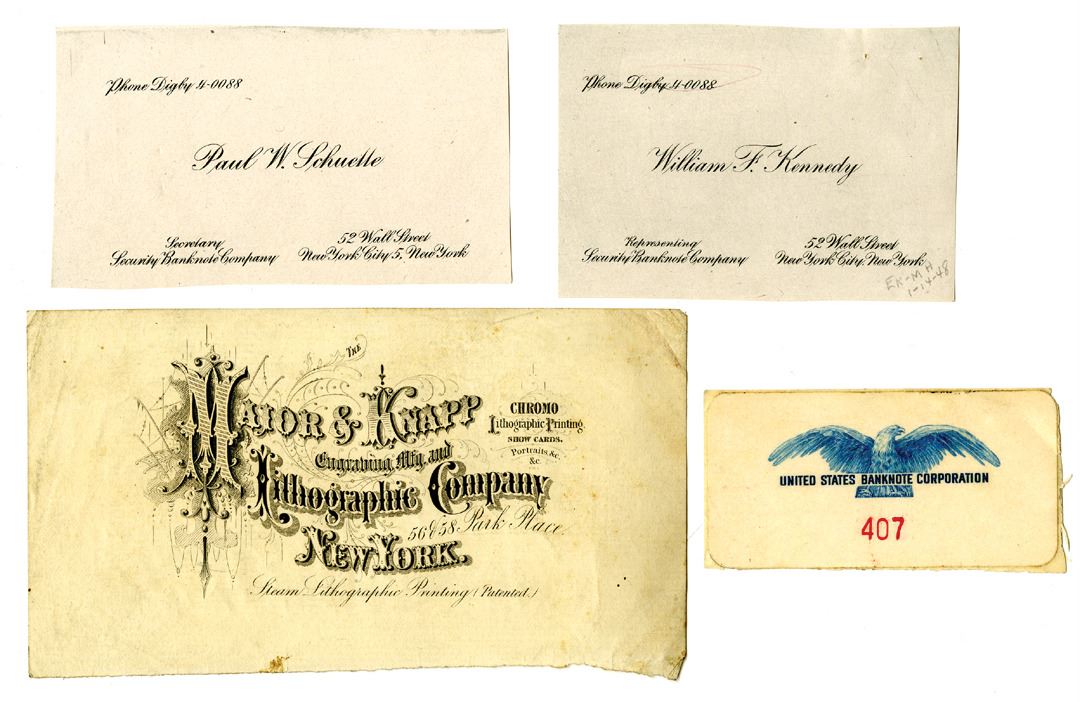 Phone Digby 4-0088
Paul W. Schuette
Secretary
Security Banknote Company
52 Wall Street
New York City 5, New York
Phone Digby 4-0088
William F. Kennedy
Representing
Security Banknote Company
52 Wall Street
New York City, New York
EK-MH
1-14-48
THE
MAJOR & KNAPP
Engraving, Mfg. and
Lithographic Company
56 & 58 Park Place.
NEW YORK.
Steam Lithographic Printing (Patented.)
CHROMO
Lithographic Printing
SHOW CARDS.
Portraits &c.
&c.
UNITED STATES BANKNOTE CORPORATION
407